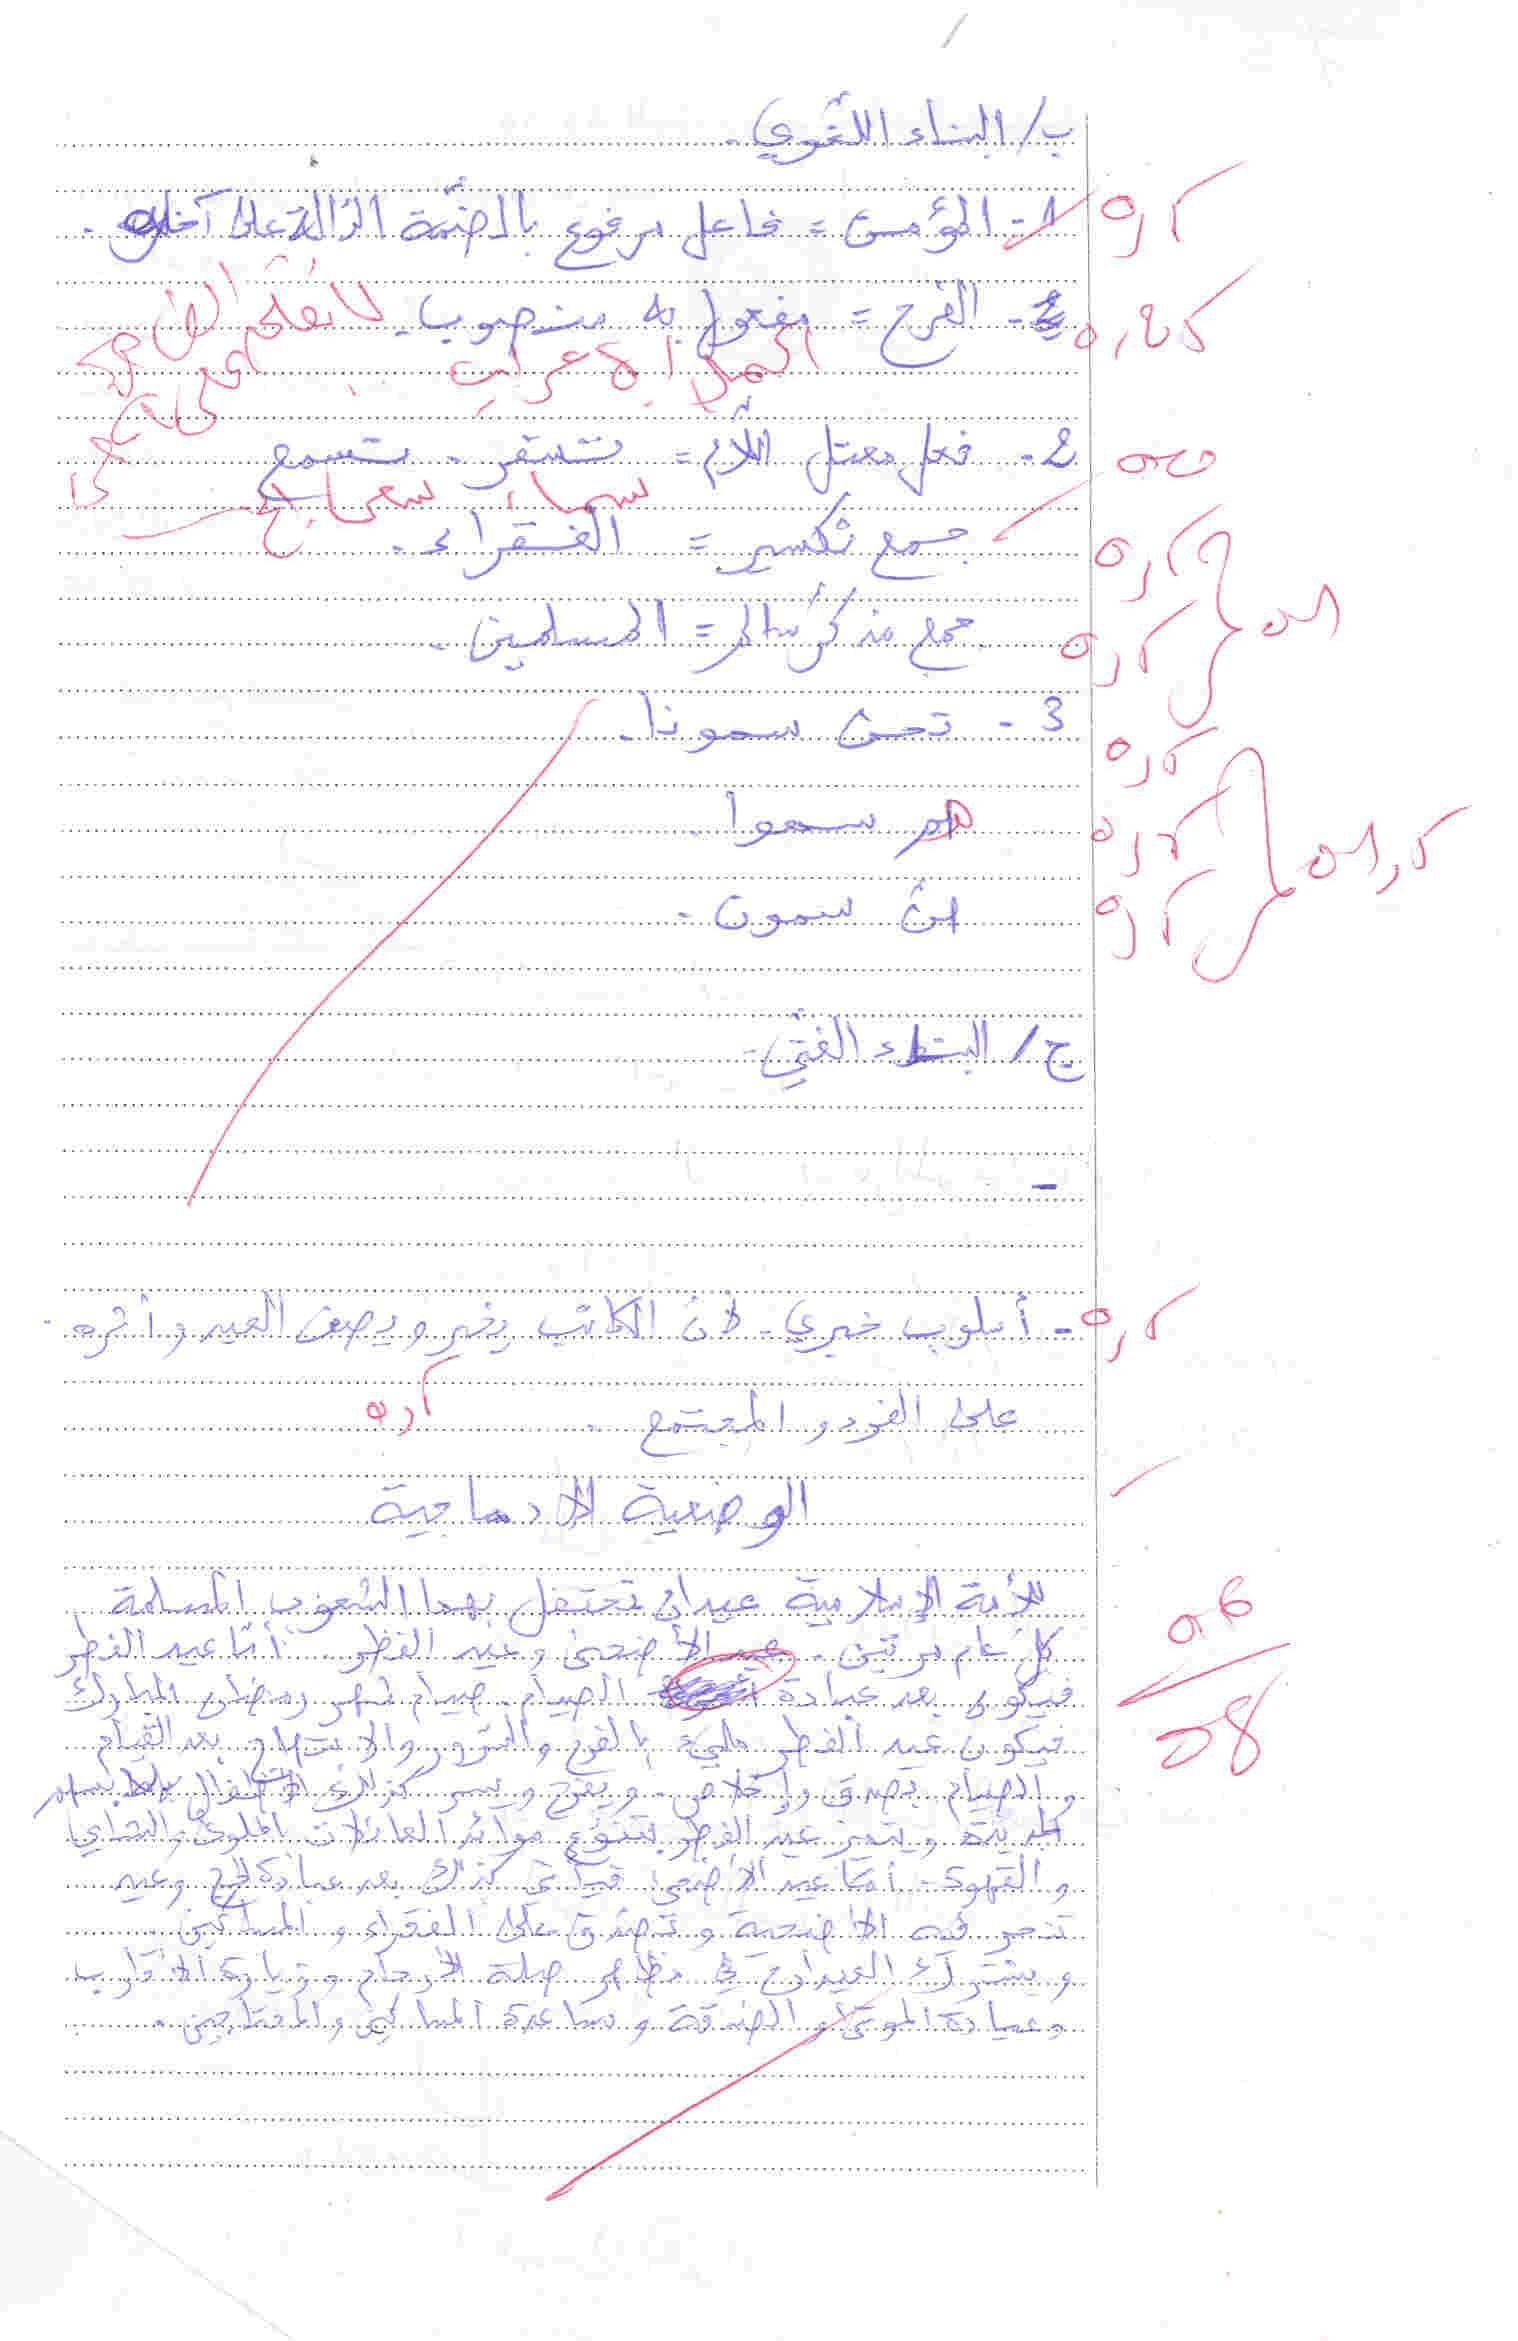 ب/ البناء اللغوي.
1- المؤمن = فاعل مرفوع بالضمّة الدّالة على آخره. 0,5
- الفرح = مفعول به منصوب. 0,25
أكمل الاعراب
2- فعل معتل اللّام = تستقر - تسمع 00
سما، سعى
جمع تكسير = الفقراء. 0,5
01
جمع مذكر سالم = المسلمين. 0,5
3 - نحن سمونا. 0,5
هم سمعوا 0,5
01,5
هنّ سمون. 0,5
ج/ البناء الفنّي.
-
- أسلوب خبري. لأن الكاتب يخبر ويصف العيد وأثره. 0,5
على الفرد والمجتمع. 0,5
الوضعية الادماجية
للأمة الإسلامية عيدان تحتفل بهما الشعوب المسلمة
كلّ عام مرتين. عيد الأضحى وعيد الفطر. أمّا عيد الفطر
06
فيكون بعد عبادة الصيام. صيام شهر رمضان المبارك
08
فيكون عيد الفطر مليء بالفرح والسّرور والابتهاج بعد القيام
والصيام بصدق وإخلاص. ويفرح ويسر كذلك الأطفال
ويتميز عيد الفطر بتنوّع موائد العائلات بالحلوى والشاي
والقهوة. أمّا عيد الأضحى فيأتي كذلك بعد عبادة الحج وفيه
تنحر فيه الأضحية وتصدّق على الفقراء والمساكين.
ويشترك العيدان في مظاهر صلة الأرحام وزيارة الأقارب
وعيادة الموتى والصدقة ومساعدة المساكين والمحتاجين.